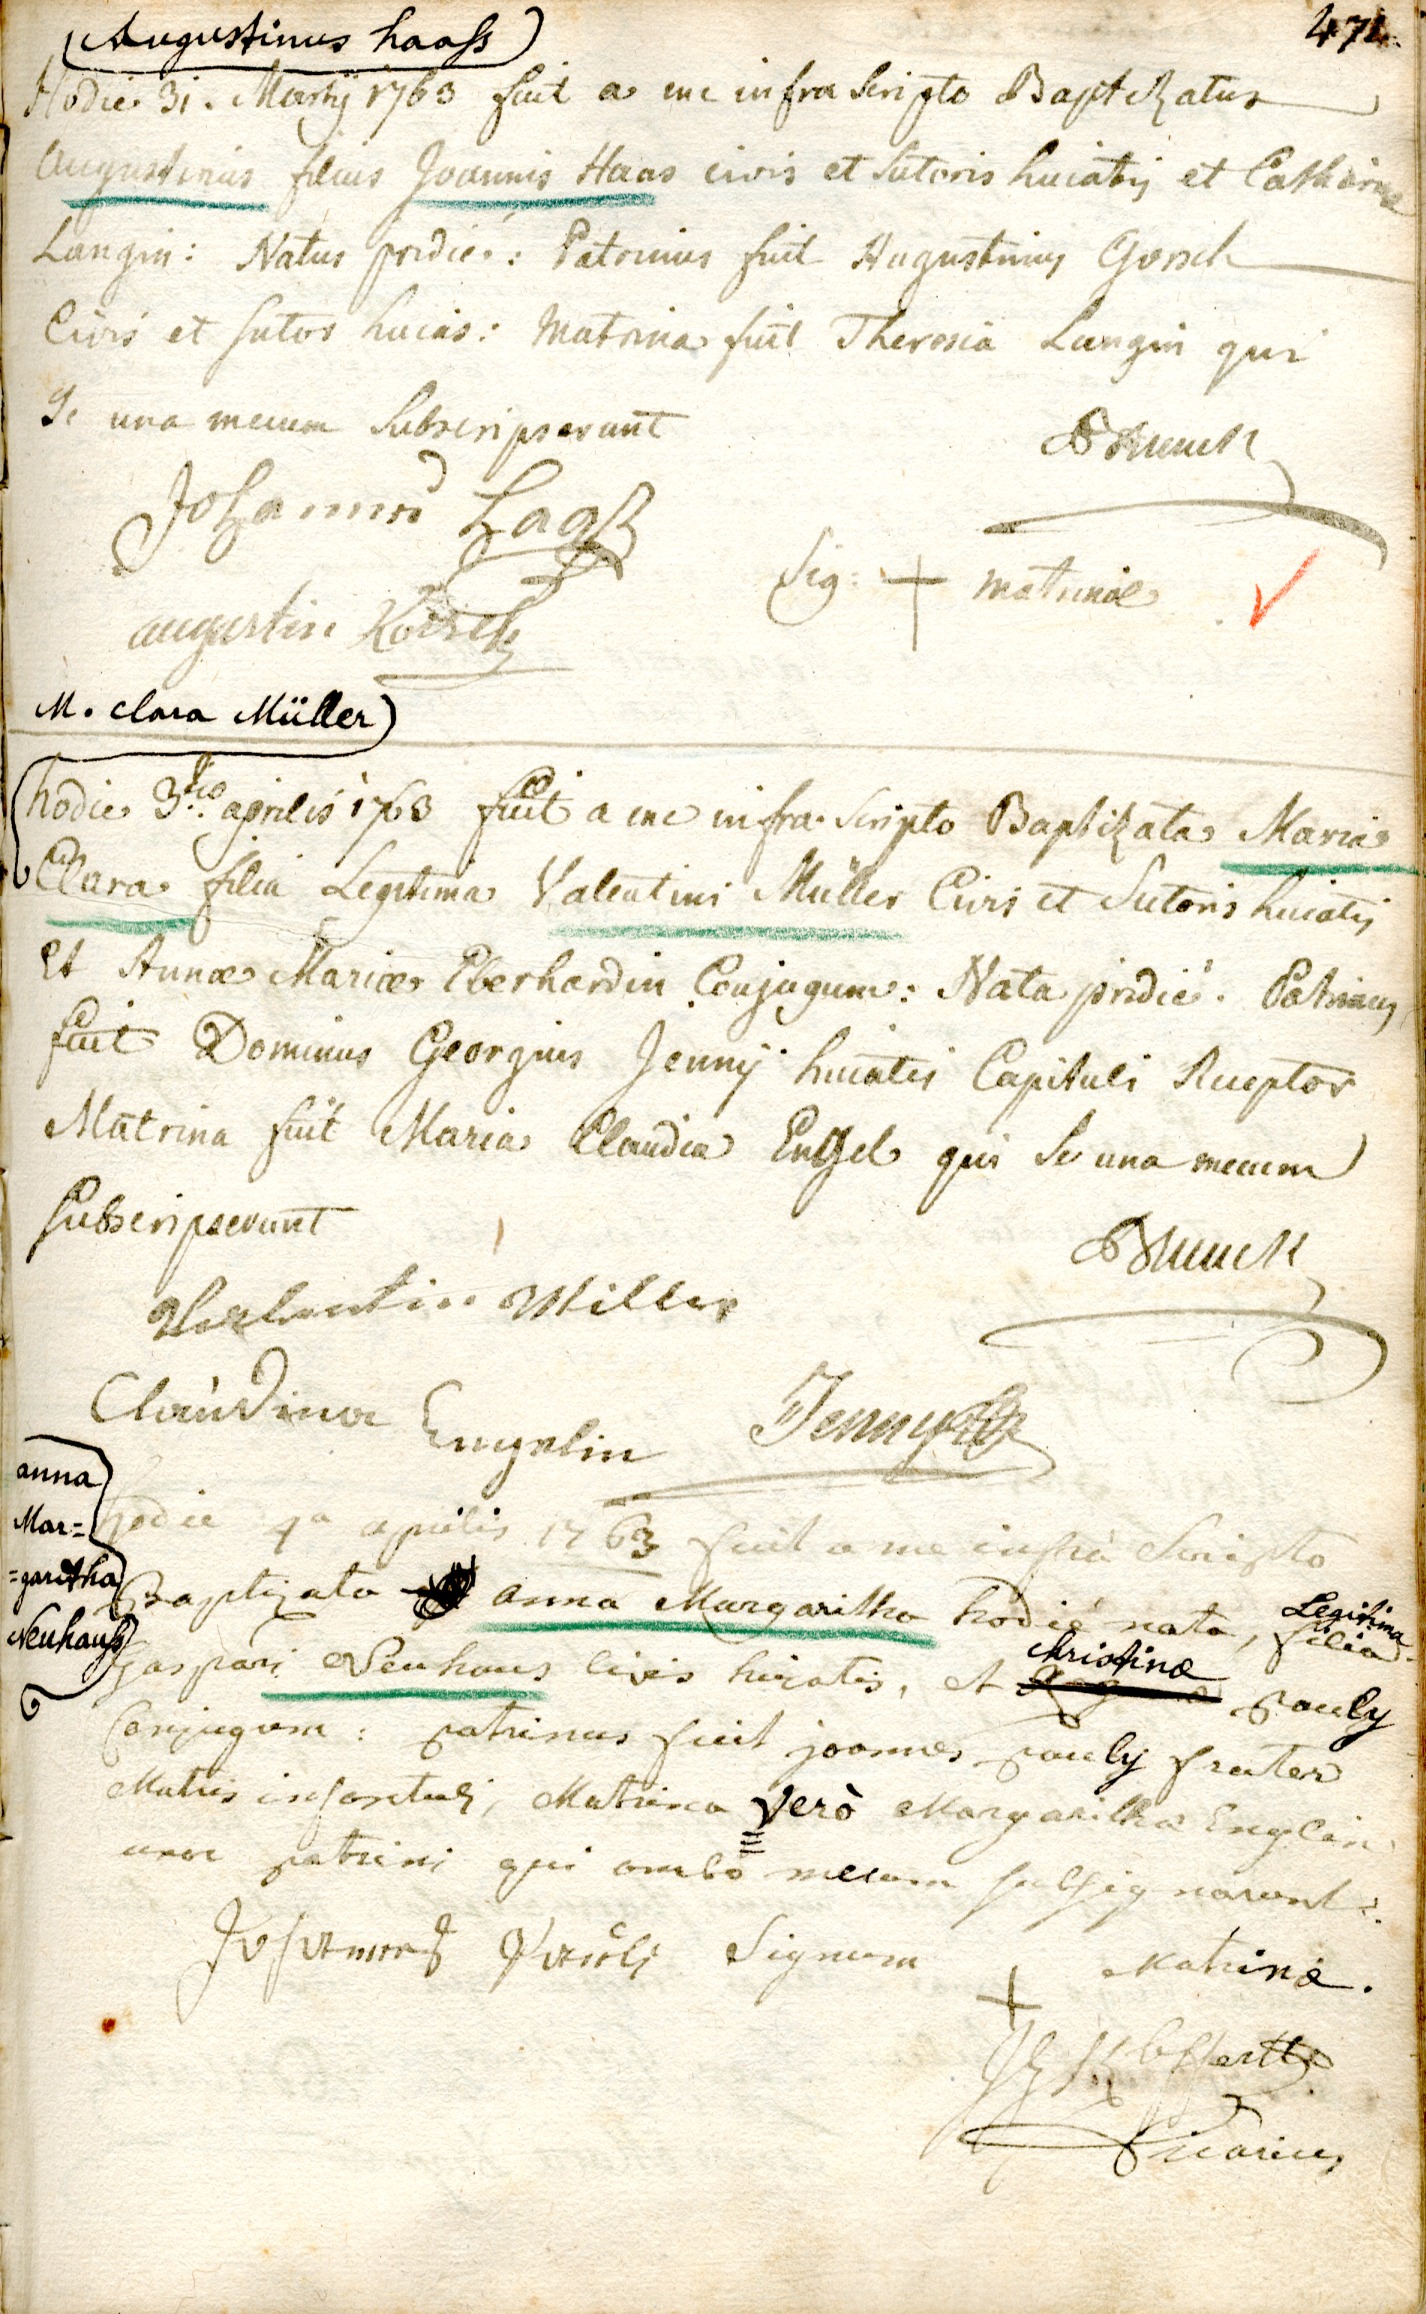 Augustinus haass
471.
Hodie 31. Martij 1763 fuit a me infra scripto Baptizatus
Augustinus filius Joannis Haas civis et sutoris huiatis et Catharinæ
Langin: Natus pridie: Patrinus fuit Augustinus Gorsch
Civis et sutor huias: Matrina fuit Theresia Langin qui
se una mecum subscripserunt
Brunck
Johannes Haaß
Sig: + matrinæ
augustin Korsch
M. clara Müller
hodie 3tio aprilis 1763 fuit a me infra scripto Baptizata Maria
Clara filia Legitima Valentini Müller Civis et Sutoris huiatis
et Annæ Mariæ Eberhardin Conjugum: Nata pridie. Patrinus
fuit Dominus Georgius Jennÿ huiatis Capituli Receptor
Matrina fuit Maria Claudia Engel qui se una mecum
subscripserunt
Brunck
Vallentin Miller
Claudina Engelin Jenny
anna
Mar=
=garitha
Neuhauss
hodie 4a aprilis 1763 fuit a me infra scripto
Baptizata anna Margaritha hodie nata, Legitima filia
gaspari Neuhaus civis hujatis, et Christinæ pauly
Conjugum: patrinus fuit joannes pauly frater
Matris infantuli, Matrina verò Margaritha Englin
uxor patrini qui ambo mecum subsignarunt:
Johannes Pauli Signum + Matrinæ.
Vicarius